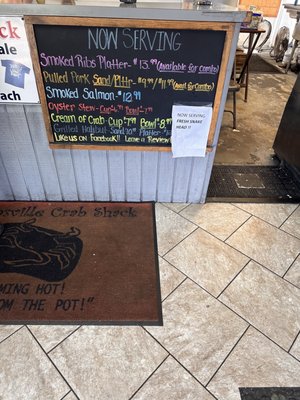 ale
ach
NOW SERVING
Smoked Ribs Platter- $13.99 (Available for Combo)
Pulled Pork Sand/Plttr- $9.99/$11.99 (Avail for Combo)
Smoked Salmon- $12.99
Oyster Stew- Cup $6.99 Bowl $7.99
Cream of Crab- Cup $7.99 Bowl- $8.99
Grilled Halibut- Sand
Like us on Facebook!! Leave a Review
NOW SERVING
FRESH SNAKE
HEAD !!
sville Crab Shack
MING HOT!
OM THE POT!"